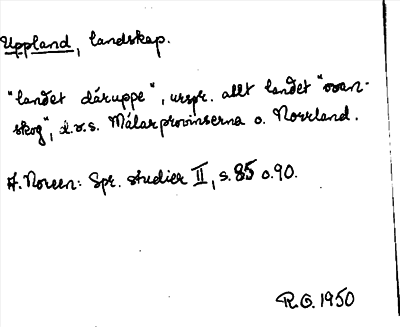 Uppland, landskap.
"landet däruppe", urspr. allt landet "ovan-
skog", d.v.s. Mälarprovinserna o. Norrland.
A. Noreen: Spr. studier II, s. 85 o. 90.
R.O. 1950